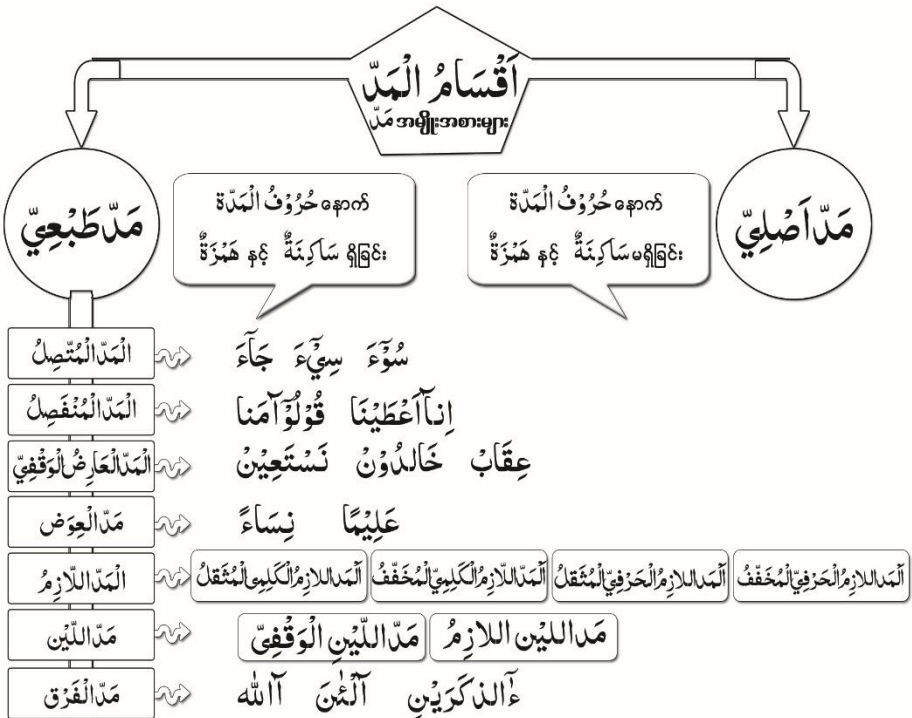 اَقْسَامُ الْمَدّ
مَدّ အမျိုးအစားများ
مَدّ اَصْلِيّ
حُرُوْفُ الْمَدّة နောက်
هَمْزَةٌ နှင့် سَاكِنَةٌ မရှိခြင်း
مَدّ طَبْعِيّ
حُرُوْفُ الْمَدّة နောက်
هَمْزَةٌ နှင့် سَاكِنَةٌ ရှိခြင်း
الْمَدّ الْمُتّصِلُ جَآءَ سِيْٓءَ سُوْٓءَ
الْمَدّ الْمُنْفَصِلُ اِنآاَعْطَيْنَا قُوْلُوْٓآمَنا
الْمَدّ الْعَارِضُ الْوَقْفِيّ عِقَابْ خَالدُوْنْ نَسْتَعِيْنْ
مَدّ الْعِوَض عَلِيْمًا نِسَاءً
الْمَدّ اللّازِمُ اَلْمَد اللازِمُ الْكَلِمِى الْمُثَقلُ اَلْمَدّ اللّازِمُ الْكَلِمِيّ الْمُخَفّفُ اَلْمَد اللازِمُ الْحَرْفِيّ الْمُثَقلُ اَلْمَد اللازِمُ الْحَرْفِيّ الْمُخَفّفُ
مَدّ اللّيْن مَدّ اللّيْنِ الْوَقْفِىّ مَد الليْن اللازِمُ
مَدّ الْفَرْق ءٰٓالذكَرَيْنِ آلْـٰٔنَ آالله